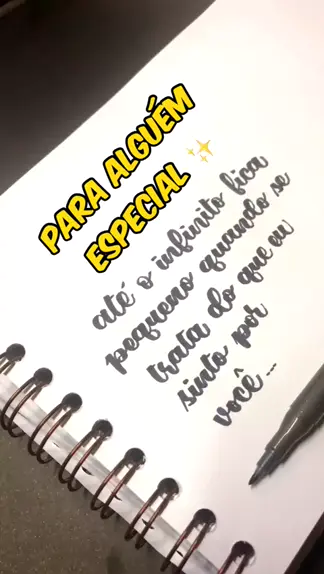 PARA ALGUÉM
ESPECIAL ✨
até o infinito fica
pequeno quando se
trata do que eu
sinto por
você...